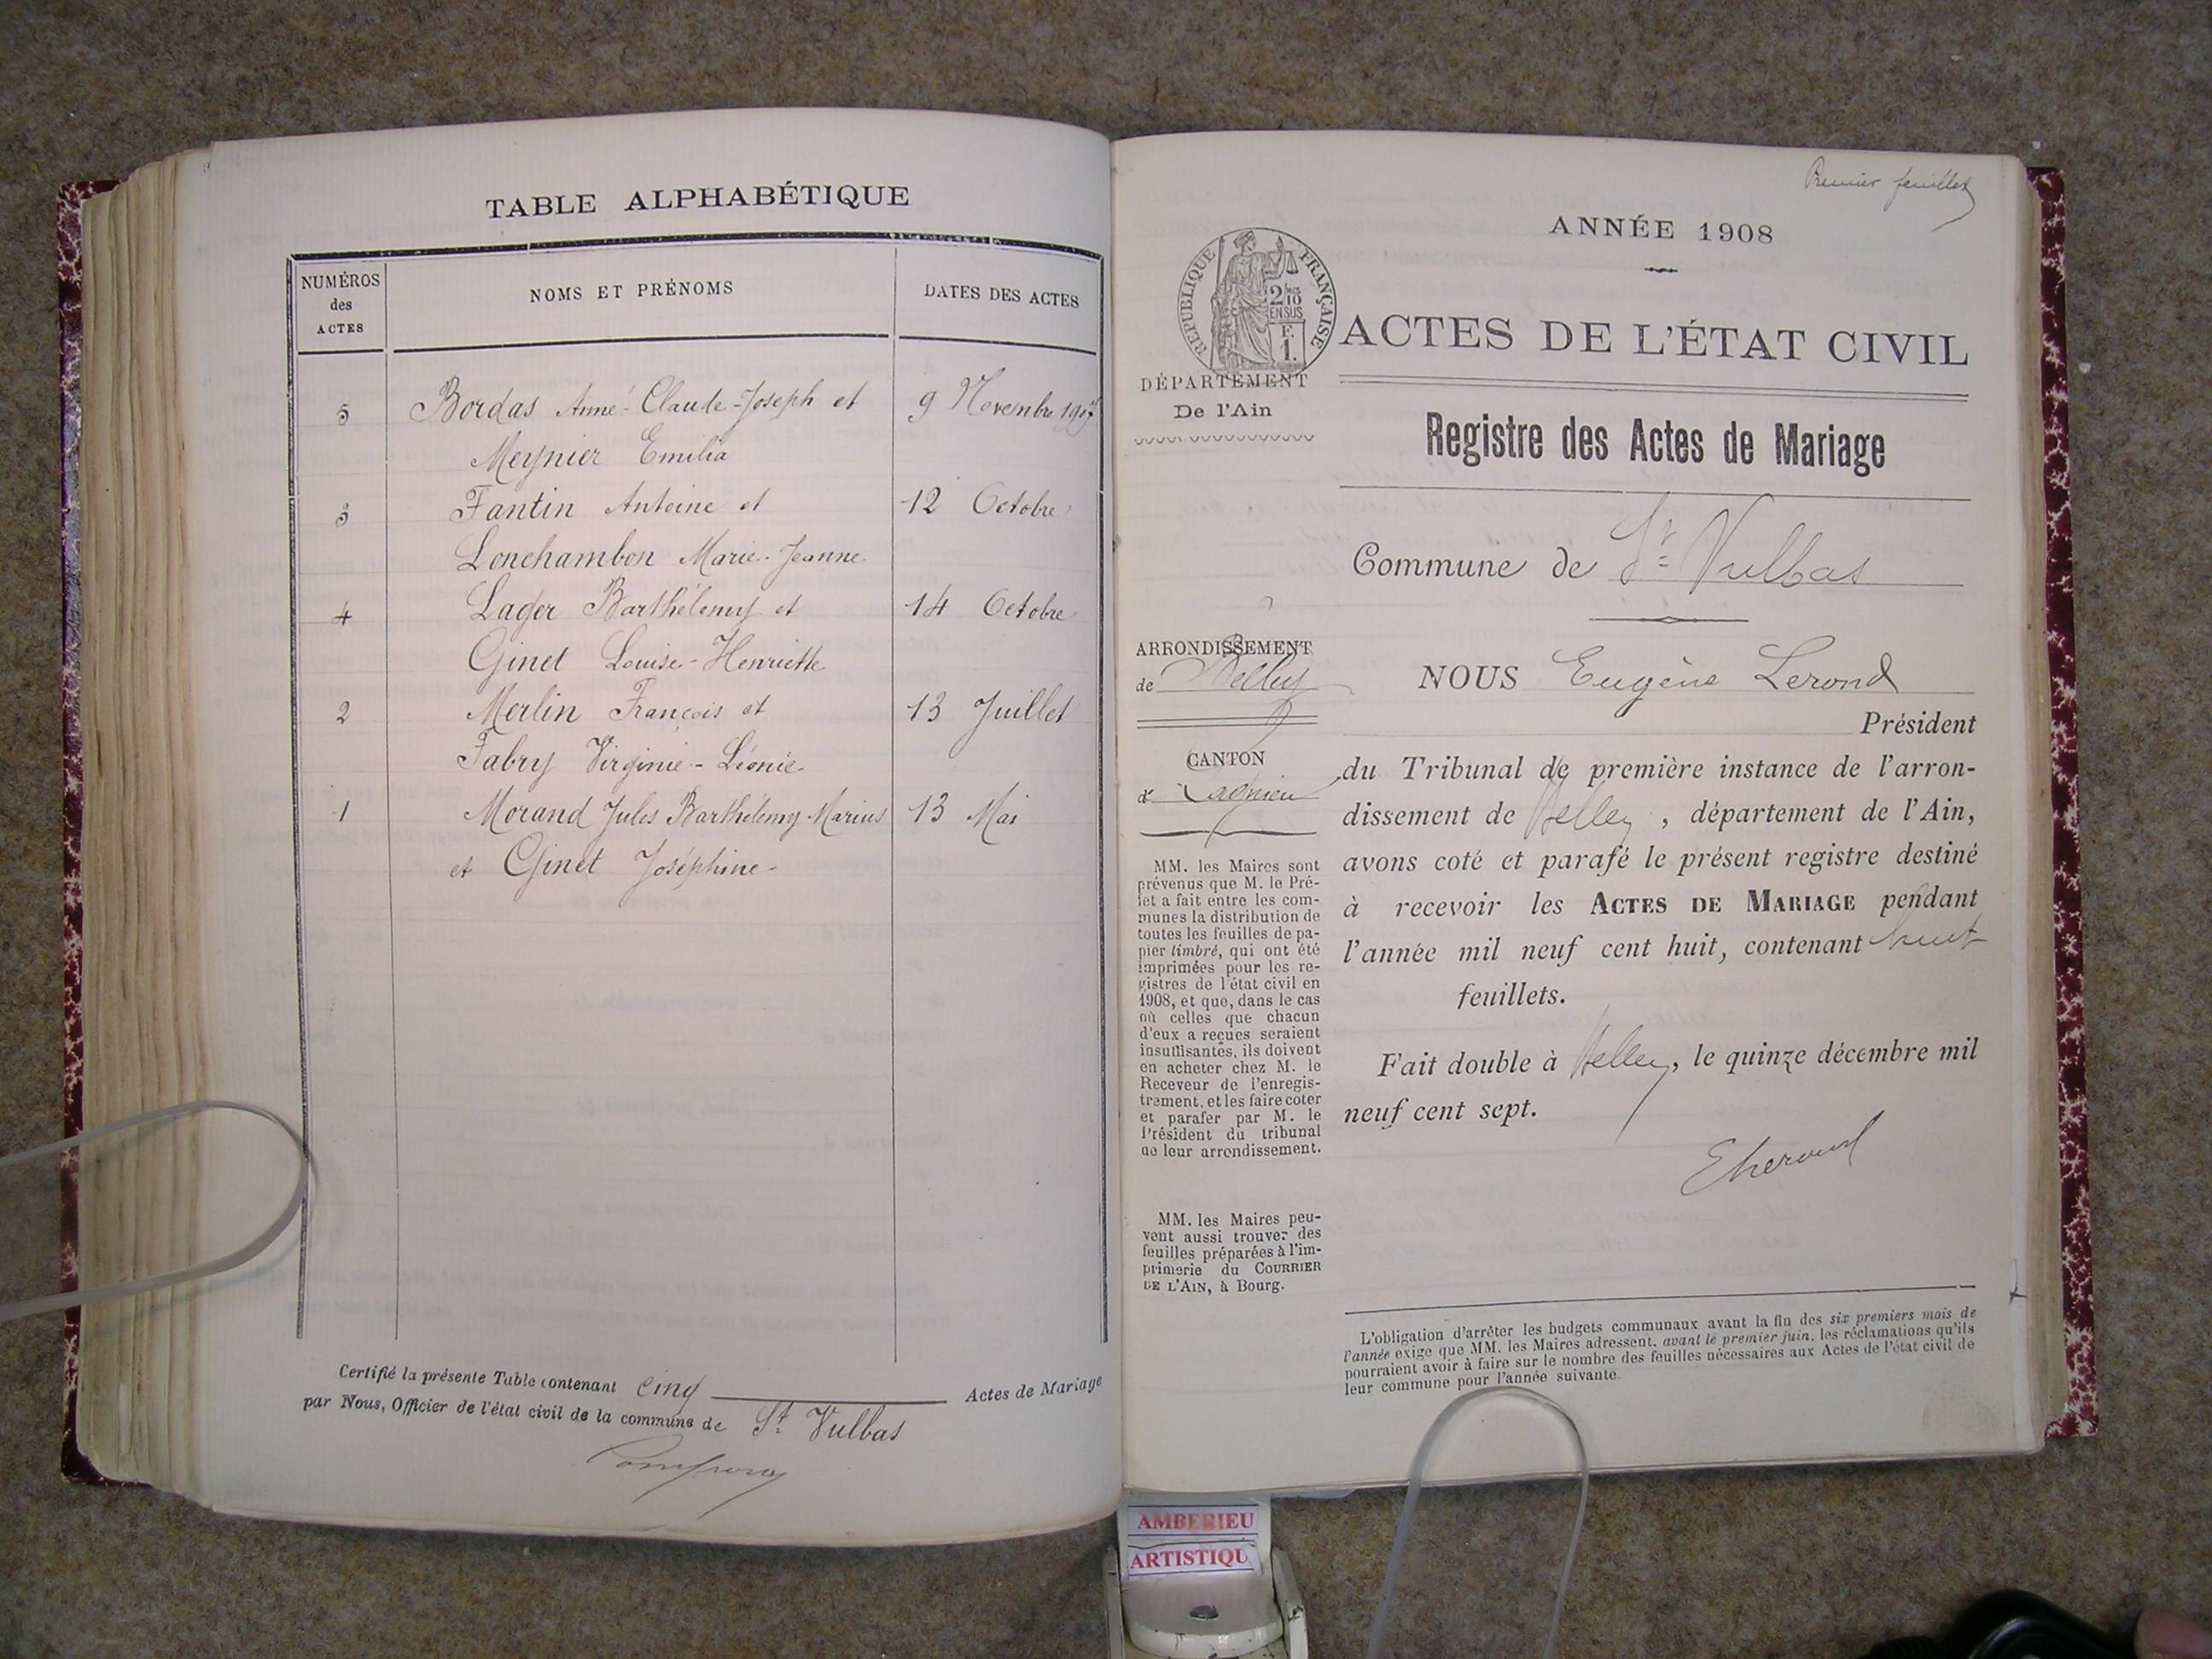 TABLE ALPHABÉTIQUE
NUMÉROS
des
ACTES
NOMS ET PRÉNOMS
DATES DES ACTES
5 Bordas Anné-Claude-Joseph et 9 Novembre 1907
Meynier Emilia
3 Fantin Antoine et 12 Octobre
Lonchambon Marie-Jeanne
4 Lager Barthélemy et 14 Octobre
Ginet Louise-Henriette
2 Merlin François et 13 Juillet
Fabry Virginie-Léonie
1 Morand Jules Barthélemy Marius 13 Mai
et Ginet Joséphine
Certifié la présente Table contenant cinq Actes de Mariage
par Nous, Officier de l'état civil de la commune de St Vulbas
Premier feuillet
ANNÉE 1908
RÉPUBLIQUE FRANÇAISE
2/10
EN SUS
F.
1.
ACTES DE L'ÉTAT CIVIL
DÉPARTEMENT
De l'Ain
Registre des Actes de Mariage
Commune de St Vulbas
ARRONDISSEMENT
de Belley
CANTON
d Lagnieu
MM. les Maires sont
prévenus que M. le Pré-
fet a fait entre les com-
munes la distribution de
toutes les feuilles de pa-
pier timbré, qui ont été
imprimées pour les re-
gistres de l'état civil en
1908, et que, dans le cas
où celles que chacun
d'eux a reçues seraient
insuffisantes, ils doivent
en acheter chez M. le
Receveur de l'enregis-
trement, et les faire coter
et parafer par M. le
Président du tribunal
de leur arrondissement.
MM. les Maires peu-
vent aussi trouver des
feuilles préparées à l'im-
primerie du COURRIER
DE L'AIN, à Bourg.
NOUS Eugène Lerond
Président
du Tribunal de première instance de l'arron-
dissement de Belley, département de l'Ain,
avons coté et parafé le présent registre destiné
à recevoir les ACTES DE MARIAGE pendant
l'année mil neuf cent huit, contenant huit
feuillets.
Fait double à Belley, le quinze décembre mil
neuf cent sept.
L'obligation d'arrêter les budgets communaux avant la fin des six premiers mois de
l'année exige que MM. les Maires adressent, avant le premier juin, les réclamations qu'ils
pourraient avoir à faire sur le nombre des feuilles nécessaires aux Actes de l'état civil de
leur commune pour l'année suivante.
AMBERIEU
ARTISTIQU